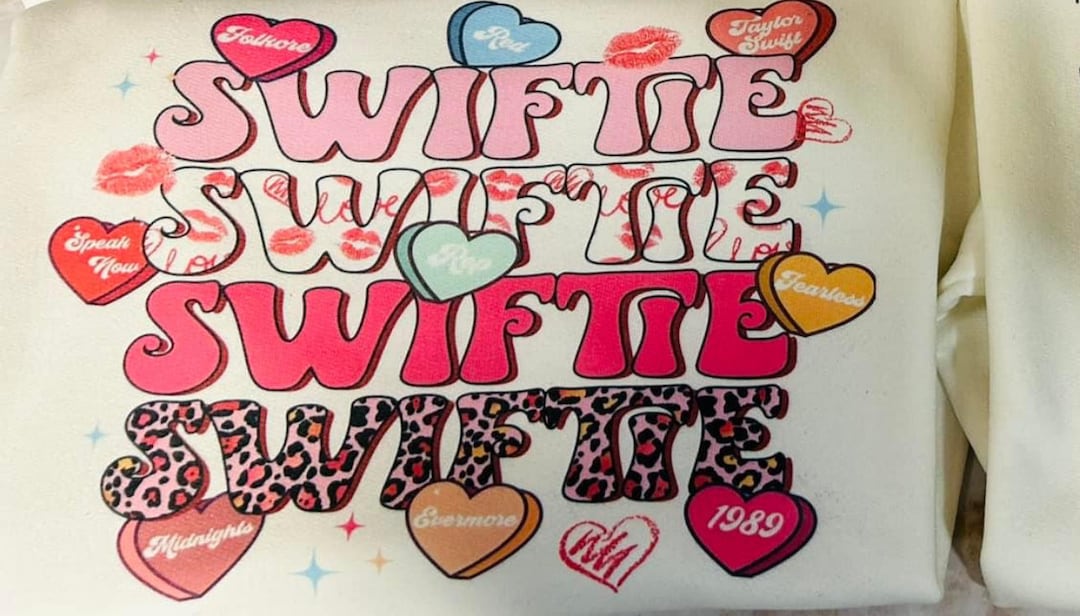 Folkore
Red
Taylor
Swift
SWIFTIE
SWIFTIE
love
love
Speak
Now
Rep
Fearless
SWIFTIE
SWIFTIE
Midnights
Evermore
1989